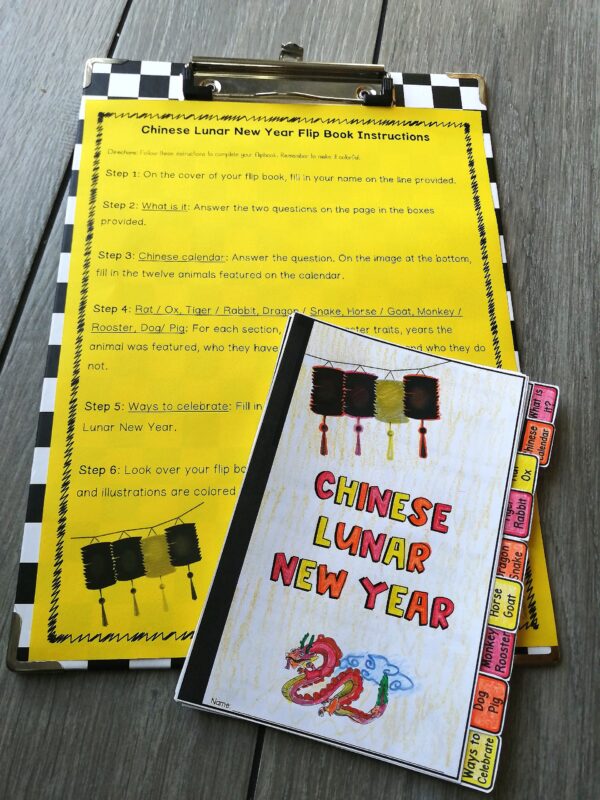 Chinese Lunar New Year Flip Book Instructions
Directions: Follow these instructions to complete your flipbook. Remember to make it colorful.
Step 1: On the cover of your flip book, fill in your name on the line provided.
Step 2: What is it: Answer the two questions on the page in the boxes
provided.
Step 3: Chinese calendar: Answer the question. On the image at the bottom,
fill in the twelve animals featured on the calendar.
Step 4: Rat / Ox, Tiger / Rabbit, Dragon / Snake, Horse / Goat, Monkey /
Rooster, Dog/ Pig: For each section, traits, years the
animal was featured, who they have and who they do
not.
Step 5: Ways to celebrate: Fill in
Lunar New Year.
Step 6: Look over your flip
and illustrations are colored
CHINESE
LUNAR
NEW YEAR
Name:
What is
it?
Chinese
Calendar
Ox
Rabbit
Dragon
Snake
Horse
Goat
Monkey
Rooster
Dog
Pig
Ways to
Celebrate